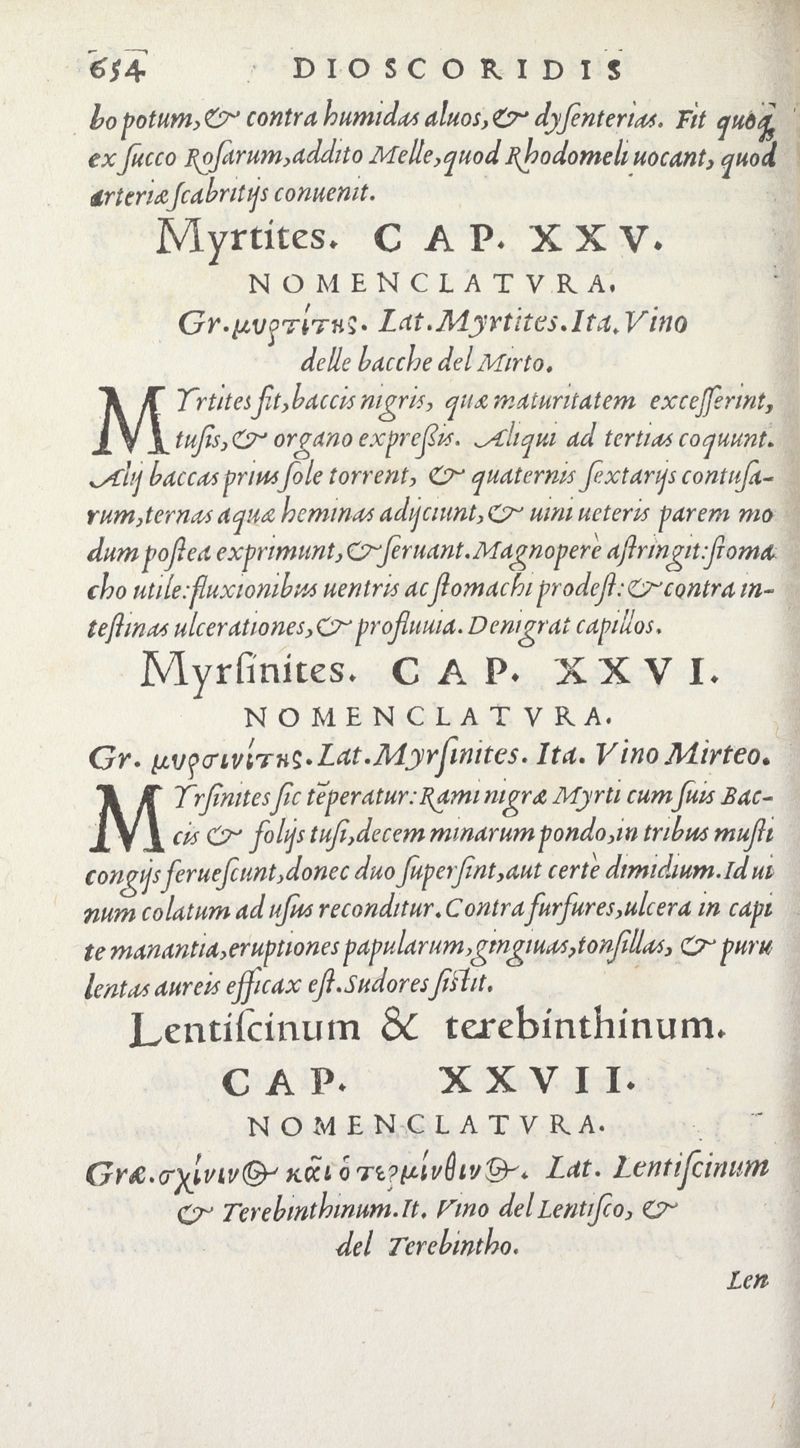 654 DIOSCORIDIS
bo potum, & contra humidas aluos, & dysenterias. Fit quoq;
ex succo Rosarum, addito Melle, quod Rhodomeli uocant, quod
arteriæ scabritijs conuenit.
Myrtites. CAP. XXV.
NOMENCLATVRA.
Gr. μυρτίτης. Lat. Myrtites. Ita. Vino
delle bacche del Mirto.
MYrtites fit, baccis nigris, quæ maturitatem excesserint,
tusis, & organo expressis. Aliqui ad tertias coquunt.
Alij baccas prius sole torrent, & quaternis sextarijs contusa-
rum, ternas aquæ heminas adijciunt, & uini ueteris parem mo
dum postea exprimunt, & seruant. Magnoperè astringit: stoma
cho utile: fluxionibus uentris ac stomachi prodest: & contra in-
testinas ulcerationes, & profluuia. Denigrat capillos.
Myrsinites. CAP. XXVI.
NOMENCLATVRA.
Gr. μυρσινίτης. Lat. Myrsinites. Ita. Vino Mirteo.
MYrsinites sic tēperatur: Rami nigræ Myrti cum suis Bac-
cis & folijs tusi, decem minarum pondo, in tribus musti
congijs feruescunt, donec duo supersint, aut certè dimidium. Id ui
num colatum ad usus reconditur. Contra furfures, ulcera in capi
te manantia, eruptiones papularum, gingiuas, tonsillas, & puru
lentas aureis efficax est. Sudores sistit.
Lentiscinum & terebinthinum.
CAP. XXVII.
NOMENCLATVRA.
Græ. σχίνινος καὶ ὁ τερμίνθινος. Lat. Lentiscinum
& Terebinthinum. It. Vino del Lentisco, &
del Terebintho.
Len